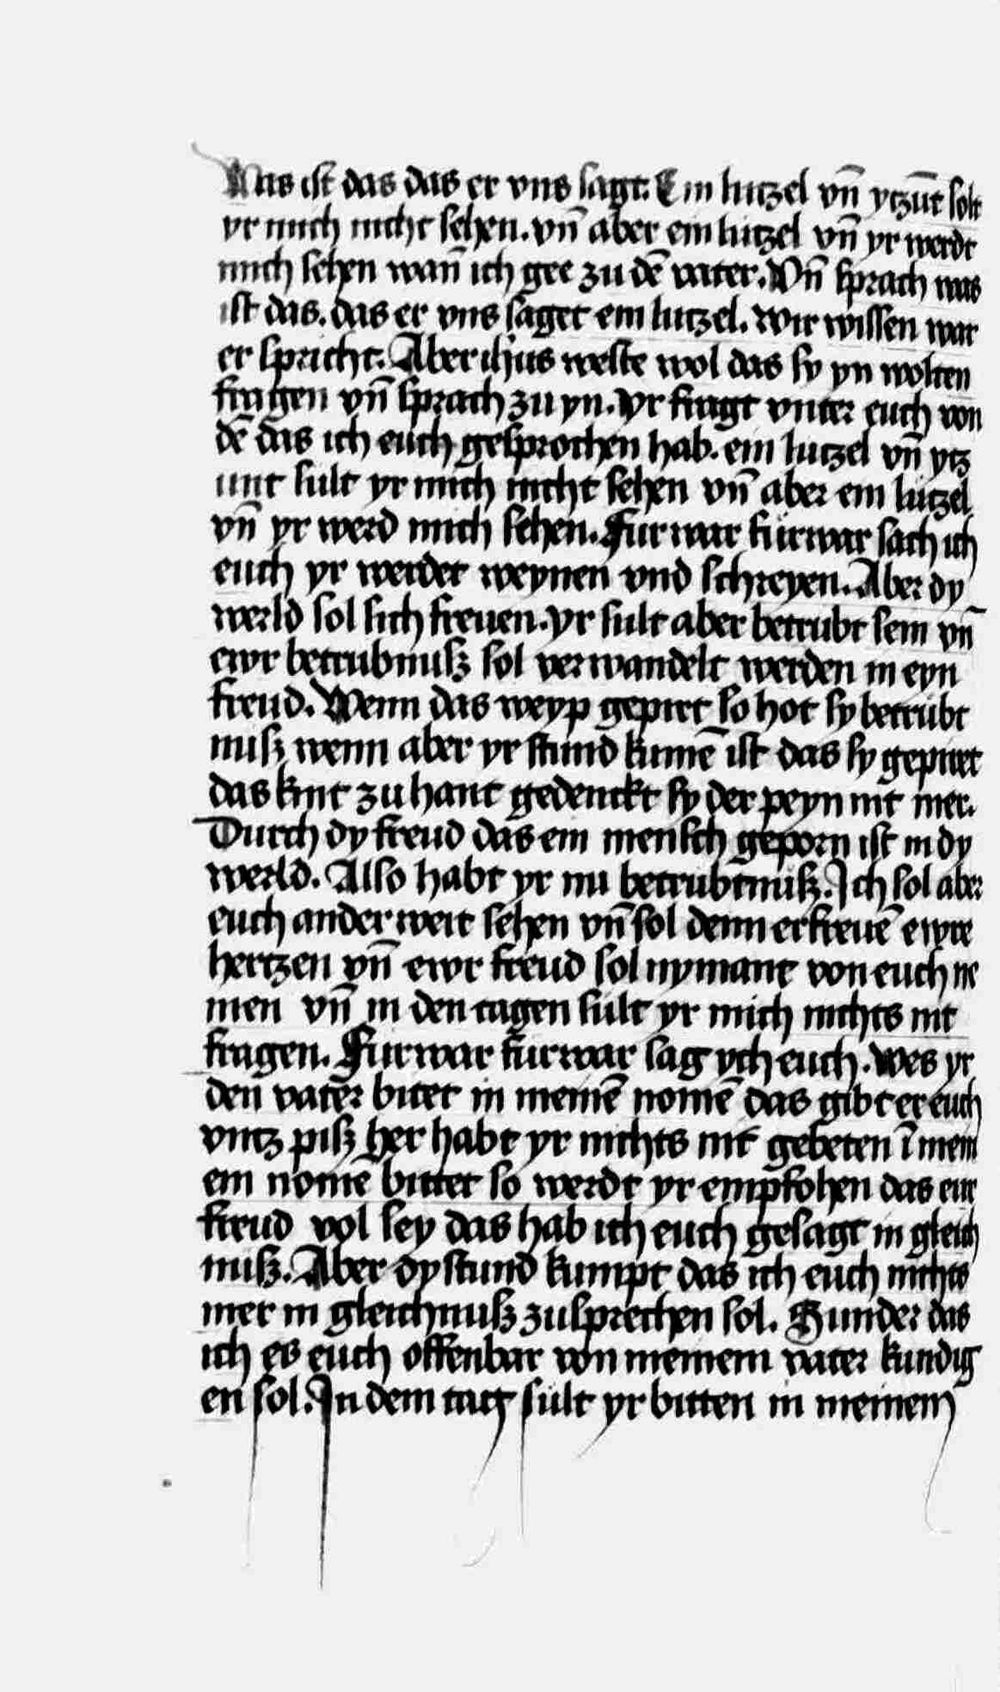 Was ist das das er vns sagt. Ein lutzel vn̄ ytzūt solt
yr mich nicht sehen. vn̄ aber ein lutzel vn̄ yr werdt
mich sehen wan̄ ich gee zu dē vater. Vn̄ sprach was
ist das. das er vns saget ein lutzel. wir wissen war
er spricht. Aber ihūs weste wol das sy yn wolten
fragen vn̄ sprach zu yn. yr fragt vnter euch von
dē das ich euch gesprochen hab. ein lutzel vn̄ ytz
unt sult yr mich nicht sehen vn̄ aber ein lutzel
vn̄ yr werd mich sehen. Furwar fürwar sach ich
euch yr werdet weynen vnd schreyen. Aber dy
werld sol sich freuen. yr sult aber betrubt sein vn̄
ewr betrubnusz sol verwandelt werden in eyn
freud. Wenn das weyp gepirt so hot sy betrubt
nusz wenn aber yr stund kumē ist das sy gepirt
das kint zu hant gedenckt sy der peyn nit mer.
Durch dy freud das ein mensch geporn ist in dy
werld. Also habt yr nu betrubtnusz. Ich sol aber
euch anderweit sehen vn̄ sol denn erfreuē ewre
hertzen vn̄ ewr freud sol nymant von euch ne
men vn̄ in den tagen sult yr mich nichts nit
fragen. Furwar fürwar sag ych euch. wes yr
den vater bitet in meinē nomē das gibt er euch
vntz pisz her habt yr nichts nit gebeten ī mein
em nomē bittet so werdt yr empfohen das eur
freud vol sey das hab ich euch gesagt in gleich
nusz. Aber dy stund kumpt das ich euch nichts
mer in gleichnusz zusprechen sol. Sunder das
ich es euch offenbar von meinem vater kundig
en sol. In dem tag sult yr bitten in meinem